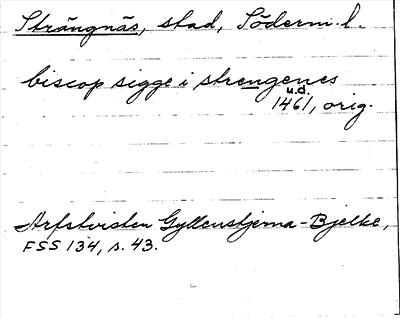 Strängnäs, stad, Söderm. l.
biscop sigge i strengenes
u.d.
1461, orig.
Arfstvisten Gyllenstjerna-Bjelke,
FSS 134, s. 43.